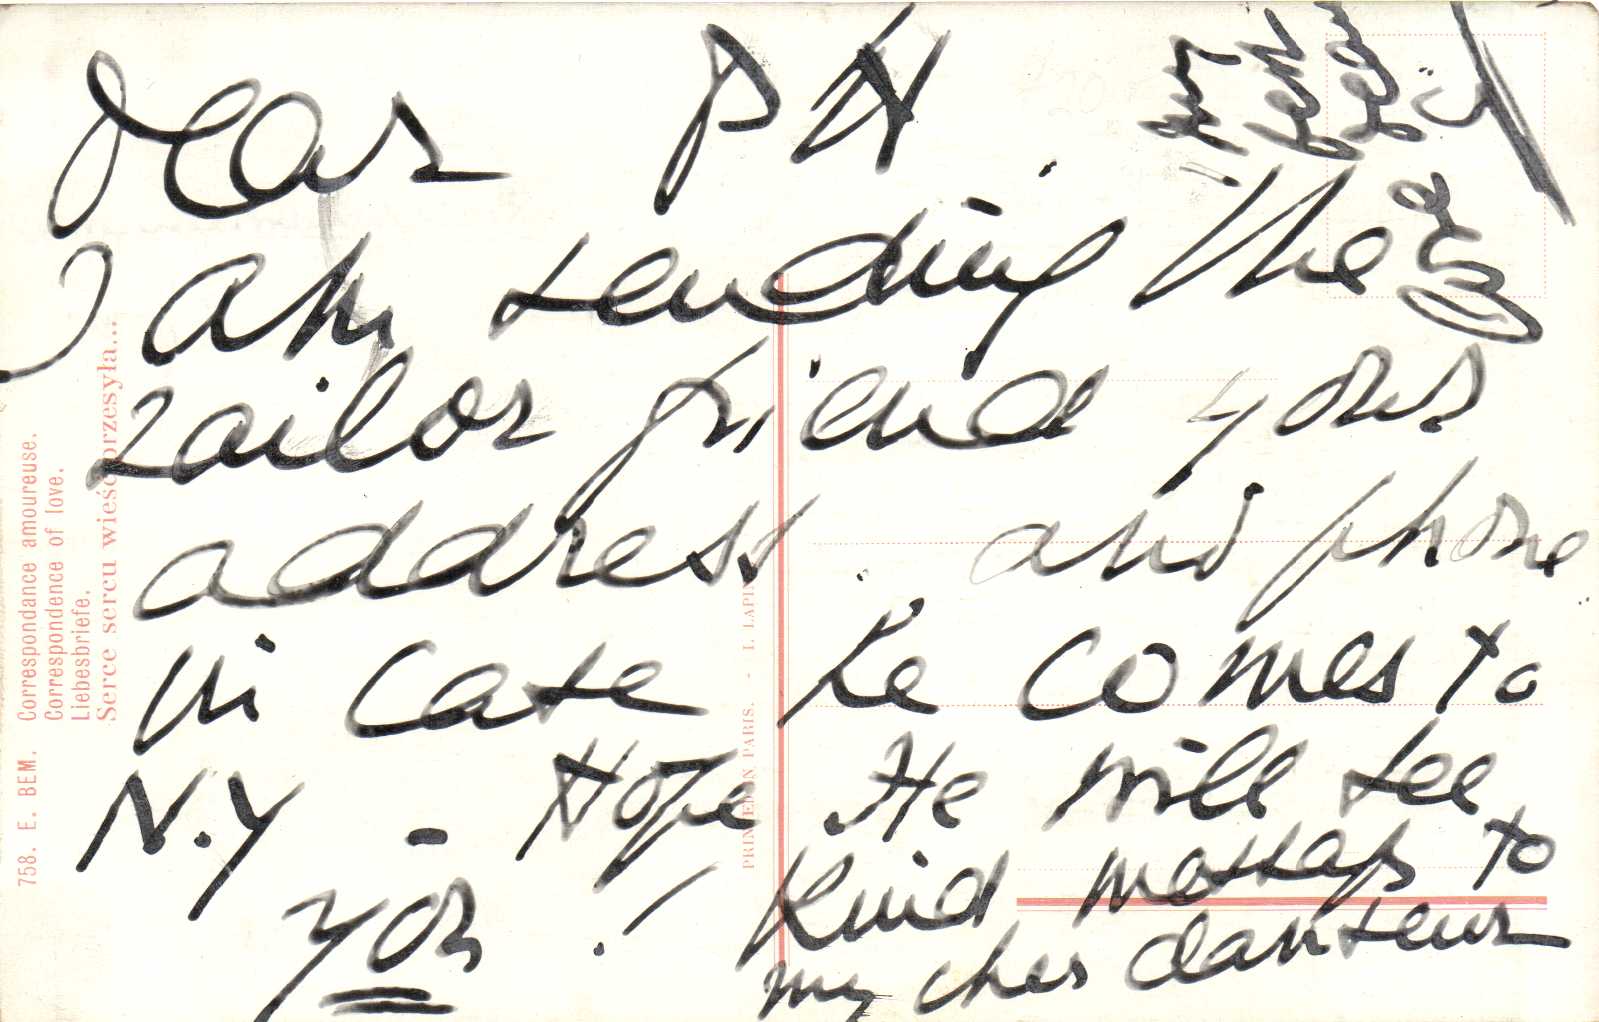 Dear PH.
I am sending the
tailor friend your
address and phone
in case he comes to
N.Y - Hope He will see
you!
Kind messages to
my cher danseur
758. E. BEM. Correspondance amoureuse.
Correspondence of love.
Liebesbriefe.
Serce sercu wieść przesyła...
PRINTED IN PARIS. - I. LAPIN